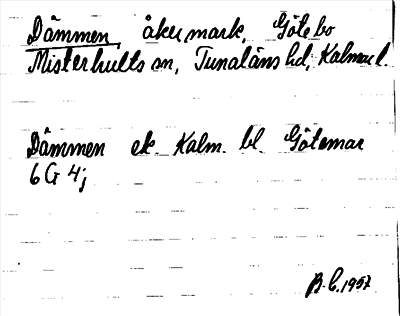 Dämmen, åkermark, Götebo
Misterhults sn, Tunaläns hd, Kalmar l.
Dämmen ek. Kalm. bl. Götemar
6 G 4j
B.C. 1957